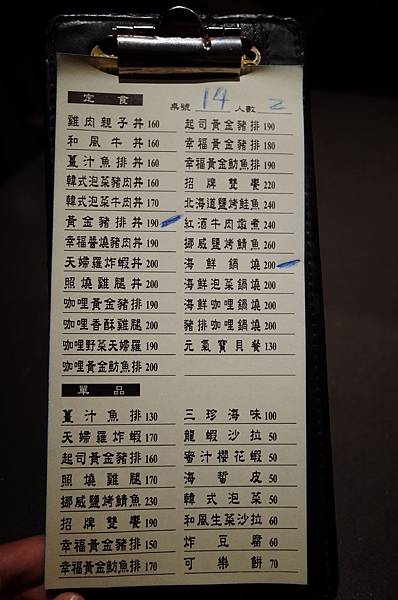 定食
桌號 14 人數 2
雞肉親子丼 160
和風牛丼 160
薑汁魚排丼 160
韓式泡菜豬肉丼 160
韓式泡菜牛肉丼 170
黃金豬排丼 190
幸福醬燒豬肉丼 190
天婦羅炸蝦丼 200
照燒雞腿丼 200
咖哩黃金豬排 200
咖哩香酥雞腿 200
咖哩野菜天婦羅 190
咖哩黃金魴魚排 200
起司黃金豬排 190
幸福黃金豬排 180
幸福黃金魴魚排 190
招牌雙饗 220
北海道鹽烤鮭魚 240
紅酒牛肉燉煮 240
挪威鹽烤鯖魚 260
海鮮鍋燒 200
海鮮泡菜鍋燒 200
海鮮咖哩鍋燒 200
豬排咖哩鍋燒 200
元氣寶貝餐 130
單品
薑汁魚排 130
天婦羅炸蝦 170
起司黃金豬排 160
照燒雞腿 170
挪威鹽烤鯖魚 230
招牌雙饗 190
幸福黃金豬排 150
幸福黃金魴魚排 170
三珍海味 100
龍蝦沙拉 50
蜜汁櫻花蝦 50
海蜇皮 50
韓式泡菜 50
和風生菜沙拉 60
炸豆腐 60
可樂餅 70